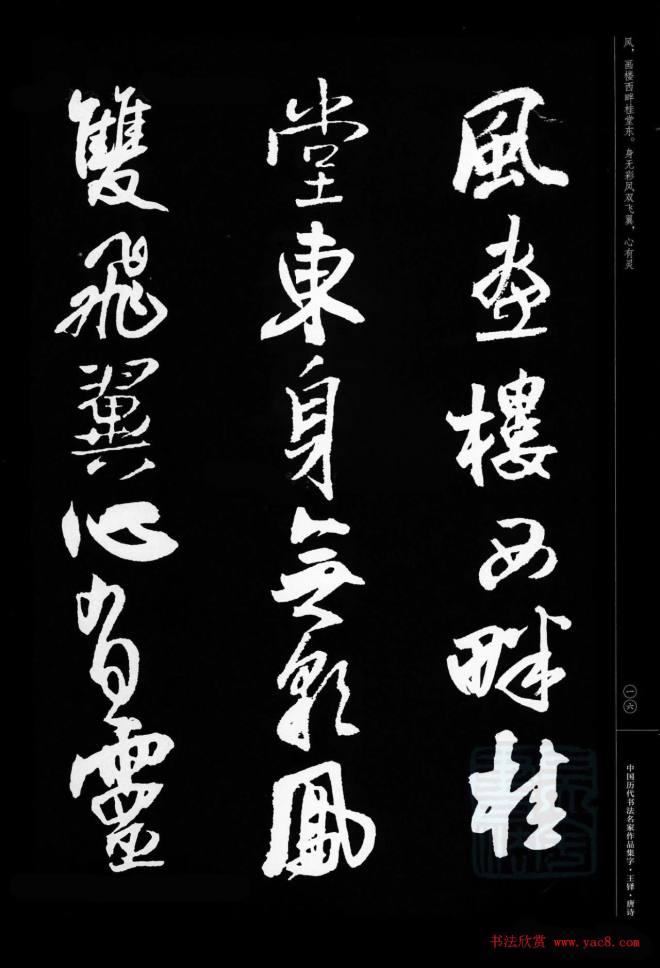 風畫樓西畔桂
堂東身無彩鳳
雙飛翼心有靈
风，画楼西畔桂堂东。身无彩凤双飞翼，心有灵
一六
中国历代书法名家作品集字·王铎·唐诗
书法欣赏 www.yac8.com